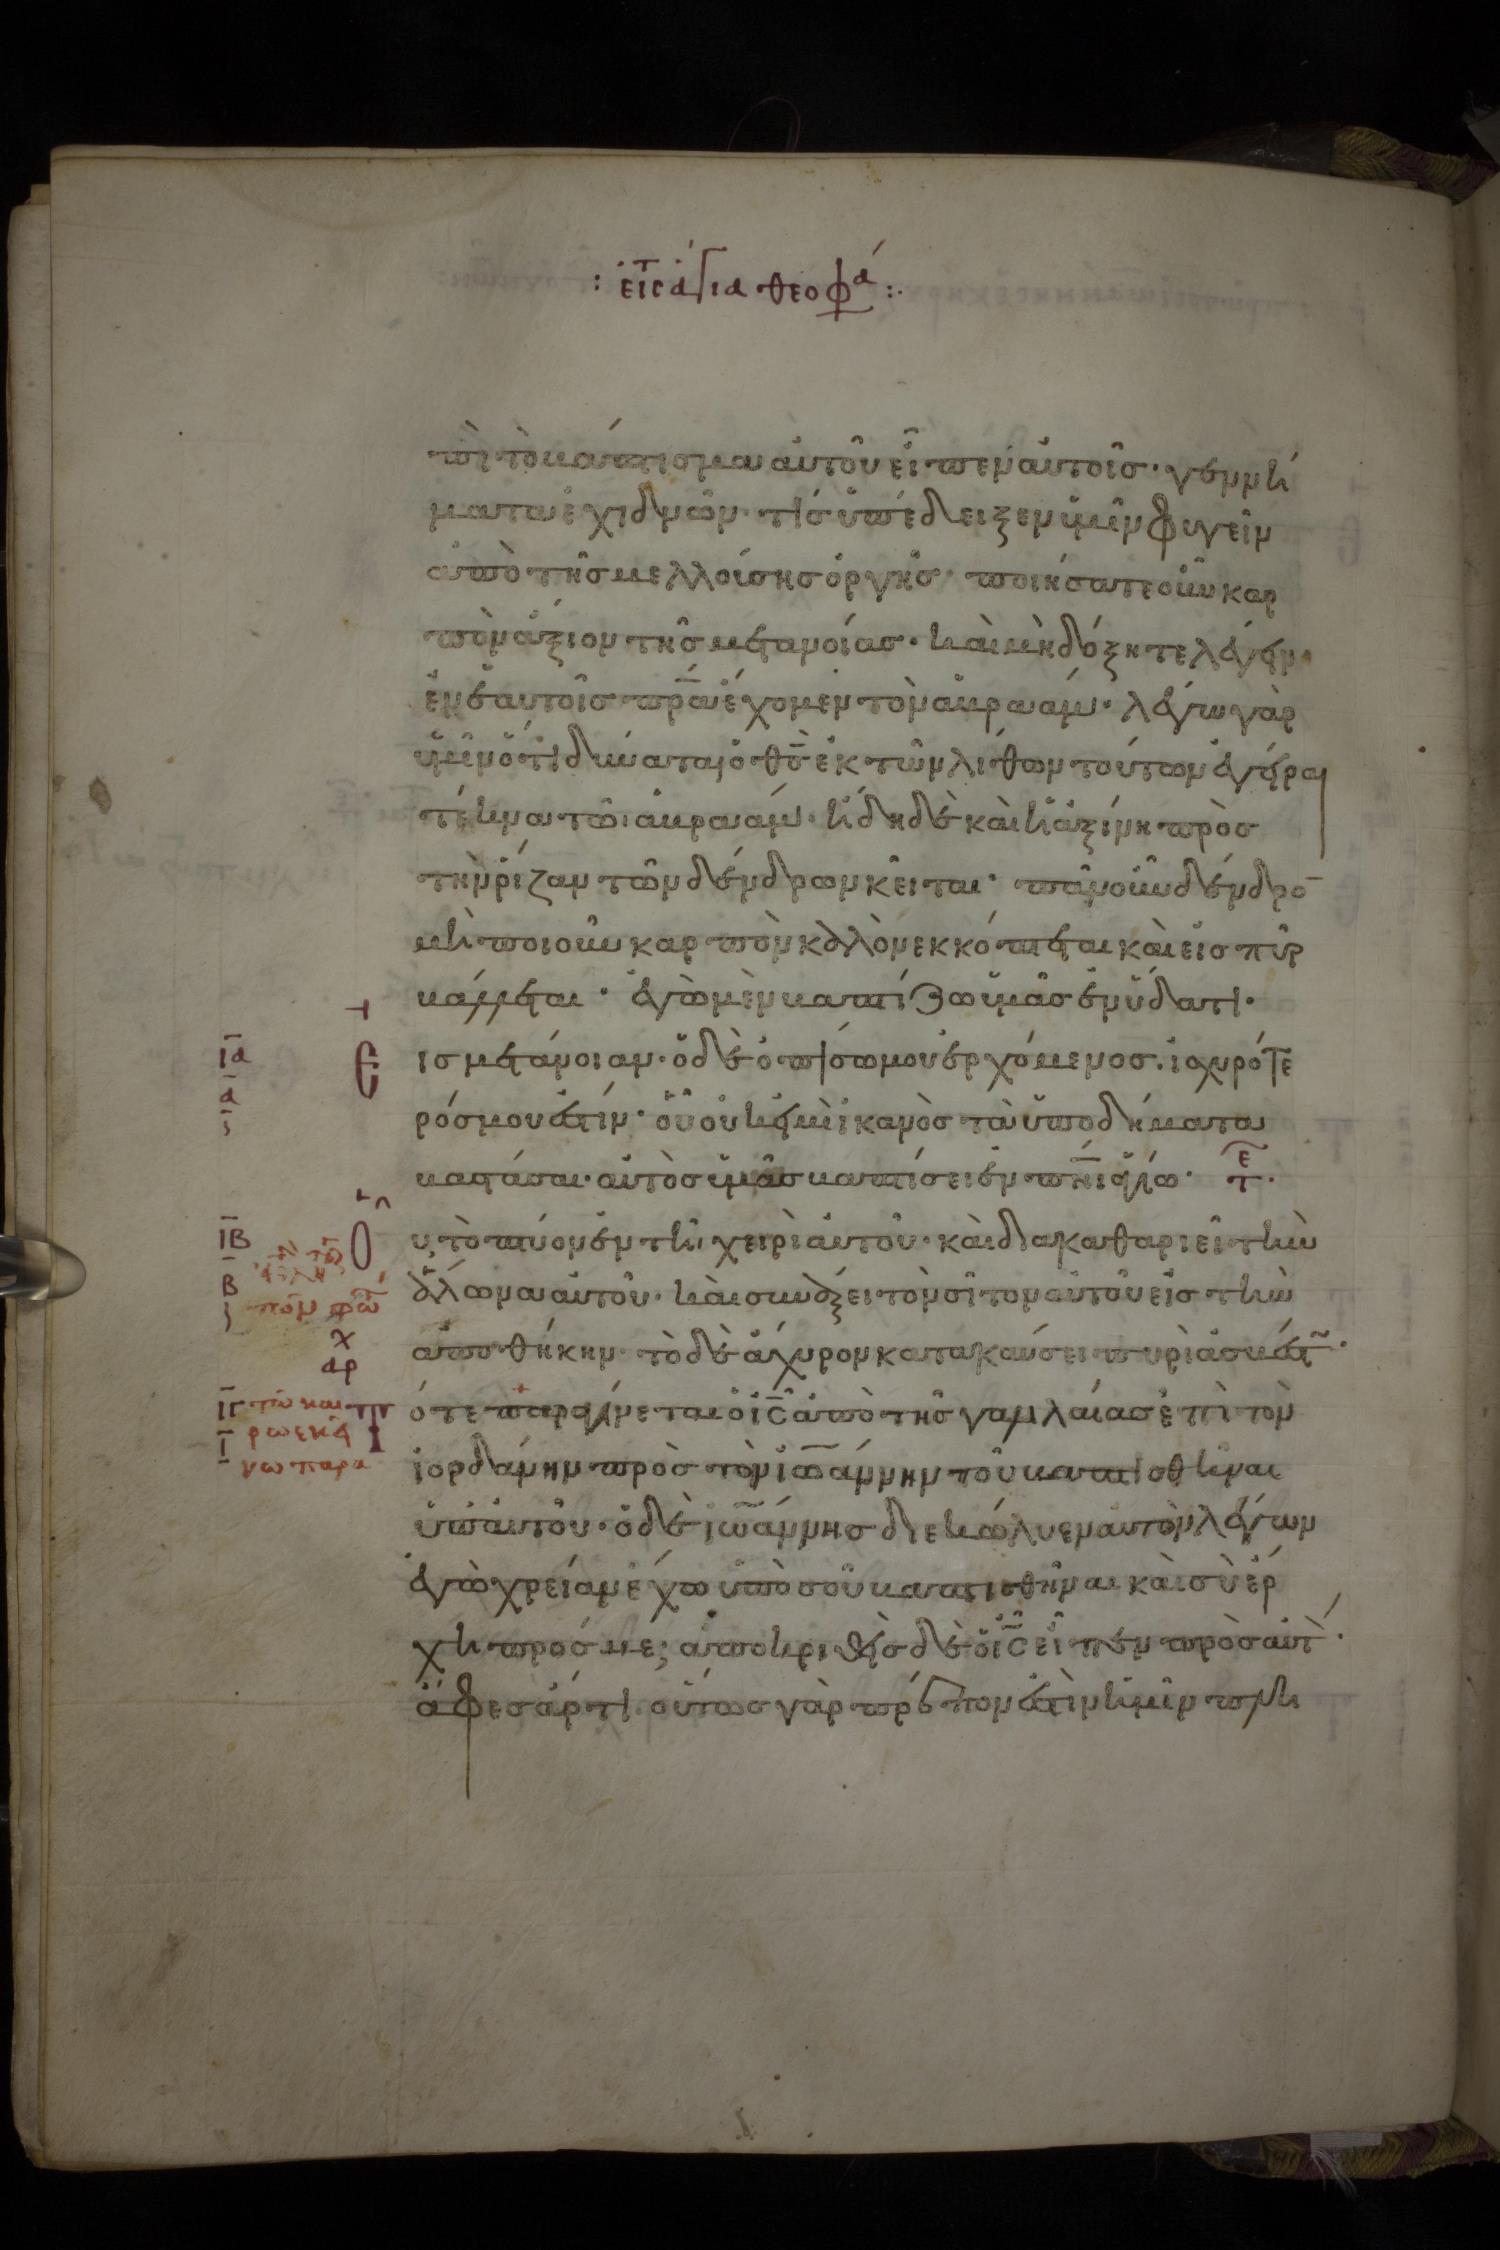 : εἰς τ̀ ἅγια θεοφά :.
πὶ τὸ βάπτισμα αὐτοῦ εἶπεν αὐτοῖς· γεννή
ματα ἐχιδνῶν· τίς ὑπέδειξεν ὑμῖν φυγεῖν
ἀπὸ τῆς μελλούσης ὀργῆς· ποιήσατε οὖν καρ
πὸν ἄξιον τῆς μετανοίας· καὶ μὴ δόξητε λέγειν
ἐν ἑαυτοῖς πρ̅α ἔχομεν τὸν ἀβραάμ· λέγω γὰρ
ὑμῖν ὅτι δύναται ὁ θ̅ς ἐκ τῶν λίθων τούτων ἐγεῖραι
τέκνα τῶ ἀβραάμ· ἤδη δὲ καὶ ἡ ἀξίνη πρὸς
τὴν ῥίζαν τῶν δένδρων κεῖται· πᾶν οὖν δένδρο̅
μὴ ποιοῦν καρπὸν καλὸν ἐκκόπτεται καὶ εἰς πῦρ
βάλλεται· ἐγὼ μὲν βαπτίζω ὑμᾶς ἐν ὕδατι·
ΙΑ Ε ις μετάνοιαν· ὁ δὲ ὀπίσω μου ἐρχόμενος· ἰσχυρότε
Α ρός μου ἐστίν· οὗ οὐκ εἰμὶ ἱκανὸς τὰ ὑποδήματα
βαστάσαι· αὐτὸς ὑμᾶς βαπτίσει ἐν πν̅ι ἁγίω· τε·
ΙΒ Ο υ τὸ πτύον ἐν τῆ χειρὶ αὐτοῦ· καὶ διακαθαριεῖ τὴν
Β ἅλωνα αὐτοῦ· καὶ συνάξει τὸν σῖτον αὐτοῦ εἰς τὴν
ἀποθήκην· τὸ δὲ ἄχυρον κατακαύσει πυρὶ ἀσβέστ·
αρχ
ΙΓ τῶ και Τ ότε παραγίνεται ὁ ι̅ς ἀπὸ τῆς γαλιλαίας ἐπὶ τὸν
Ι ρω εκεί ἰορδάνην πρὸς τὸν ἰωάννην τοῦ βαπτισθῆναι
νω παρα
ὑπ' αὐτοῦ· ὁ δὲ ἰωάννης διεκώλυεν αὐτὸν λέγων
ἐγὼ χρείαν ἔχω ὑπὸ σοῦ βαπτισθῆναι καὶ σὺ ἔρ
χη πρός με; ἀποκριθεὶς δὲ ὁ ι̅ς εἶπεν πρὸς αὐτ·
ἄφες ἄρτι· οὕτως γὰρ πρέπον ἐστὶν ἡμῖν πλη